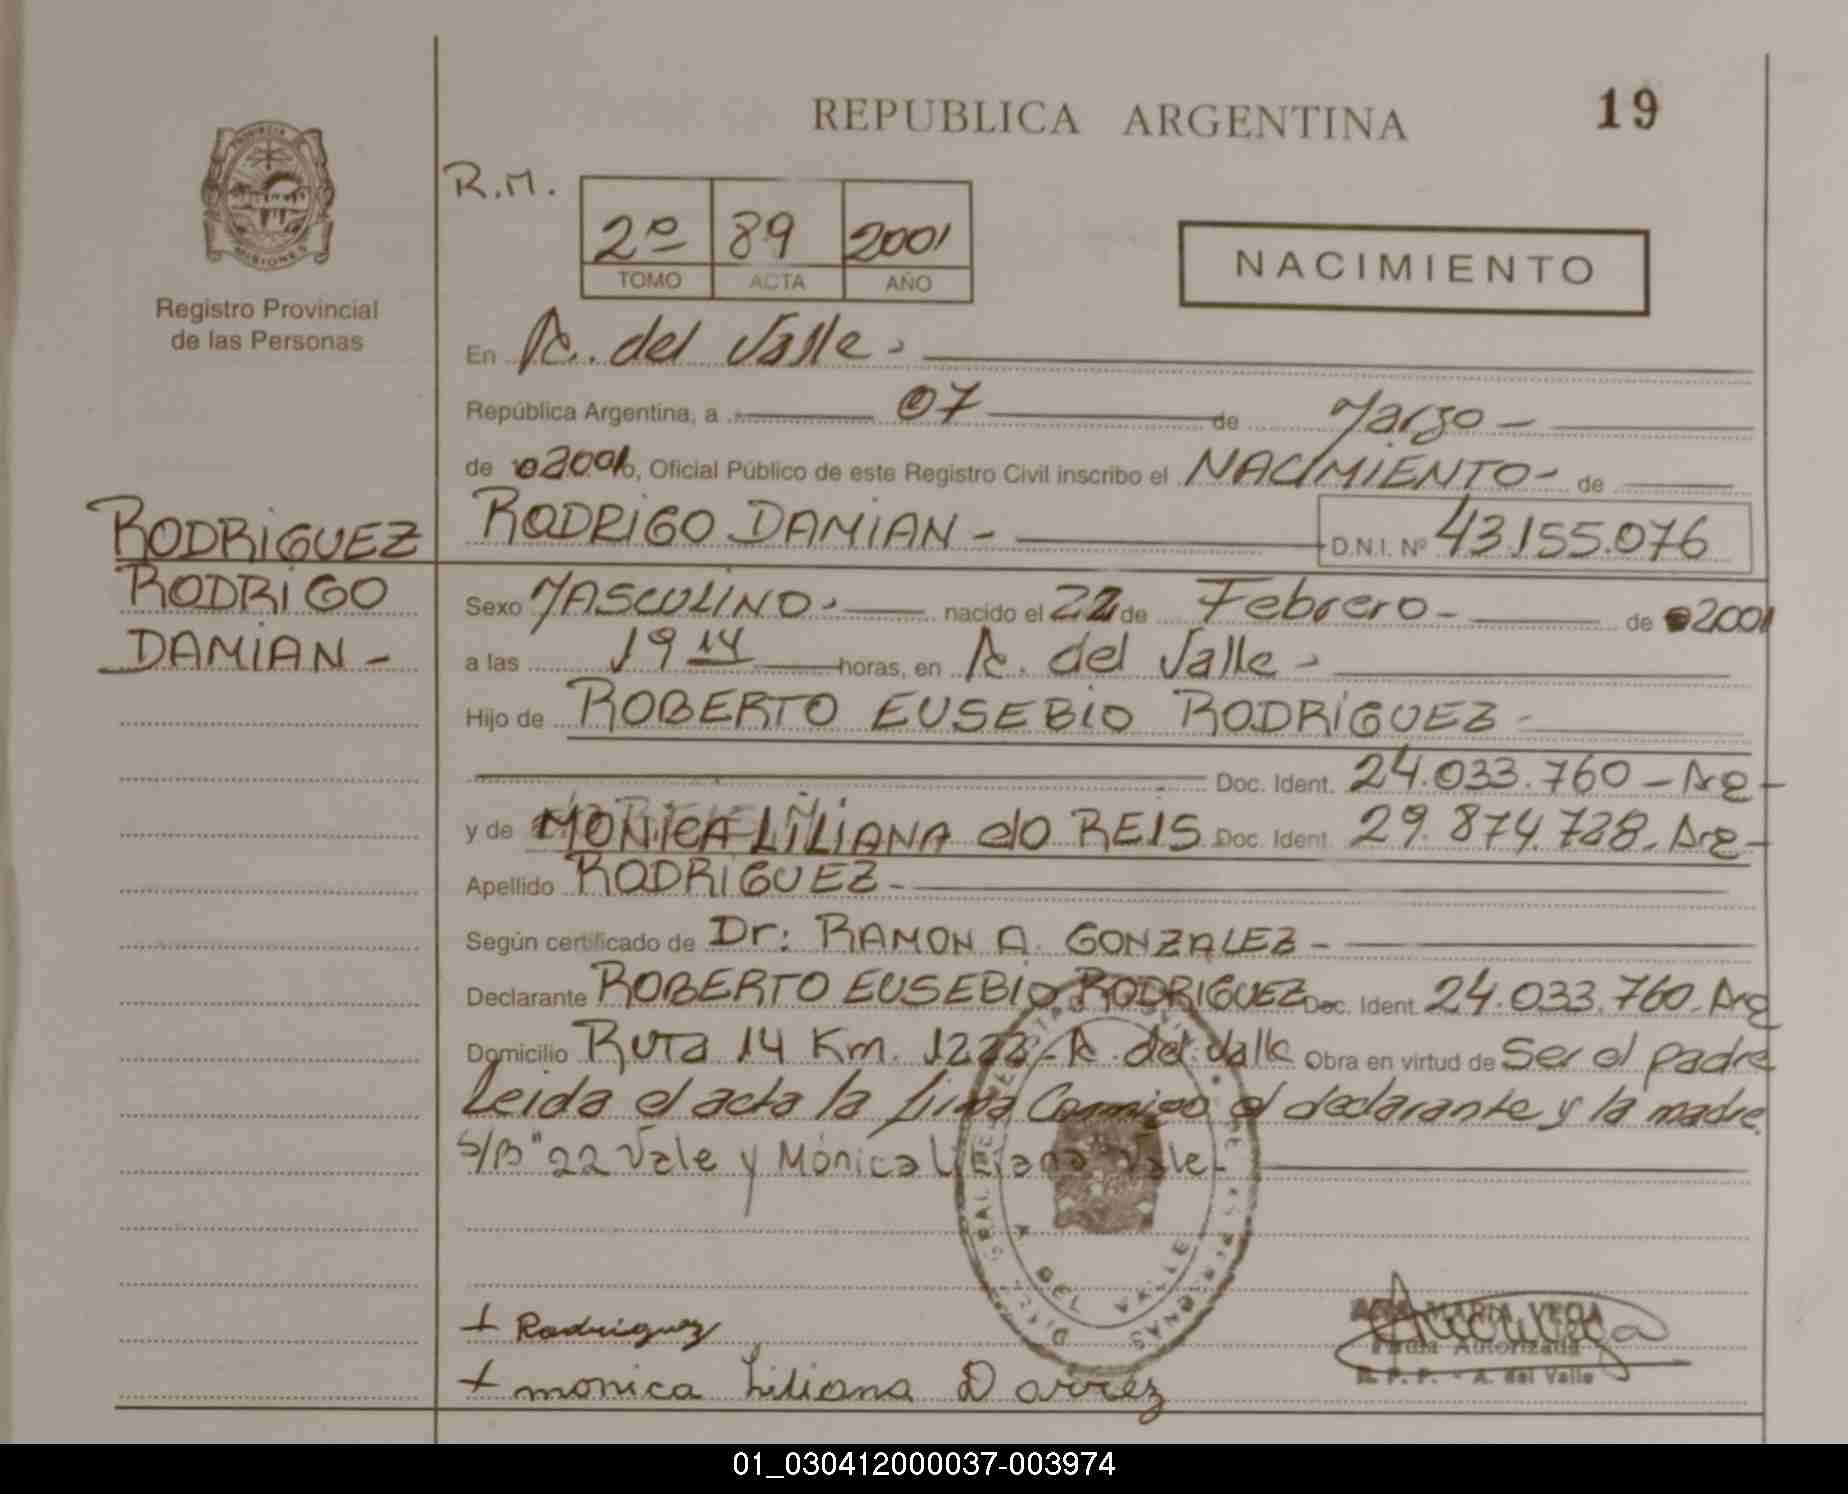 REPUBLICA ARGENTINA
19
PROVINCIA
MISIONES
Registro Provincial
de las Personas
R.M.
2º 89 2001
TOMO ACTA AÑO
NACIMIENTO
En A. del Valle -
República Argentina, a 07 de Marzo -
de 2001, Oficial Público de este Registro Civil inscribo el NACIMIENTO - de
RODRIGO DAMIAN - D.N.I. Nº 43.155.076
RODRIGUEZ
RODRIGO
DAMIAN -
Sexo MASCULINO - nacido el 22 de Febrero - de 2001
a las 19 14 horas, en A. del Valle -
Hijo de ROBERTO EUSEBIO RODRIGUEZ -
Doc. Ident. 24.033.760 - Arg -
y de MONICA LILIANA dO REIS Doc. Ident. 29.874.728 - Arg -
Apellido RODRIGUEZ -
Según certificado de Dr: RAMON A. GONZALEZ -
Declarante ROBERTO EUSEBIO RODRIGUEZ Doc. Ident. 24.033.760 - Arg
Domicilio Ruta 14 Km. 1222 - A. del Valle Obra en virtud de Ser el padre
Leida el acta la firma Conmigo el declarante y la madre
S/B "22 Vale y Mónica Liliana Vale -
DEL VALLE
+ Rodriguez
+ monica Liliana D
MARIA VEGA
Firma Autorizada
R. P. P. - A. del Valle
01_030412000037-003974